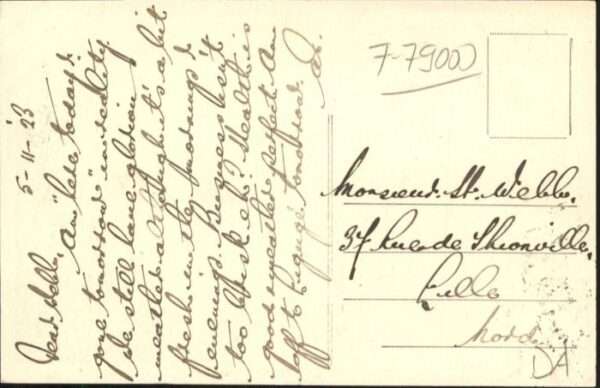 5-11-23
Dear Webb, Am "here today &
gone tomorrow" in reality.
We still have glorious
weather altho' it's a bit
fresh in the mornings &
evenings. Business isn't
too brisk eh? Health is
good & weather perfect. Am
off to tomorrow.
7-79000
Monsieur. St. Webb.
37 Rue de Thionville.
Lille
Nord.
DA